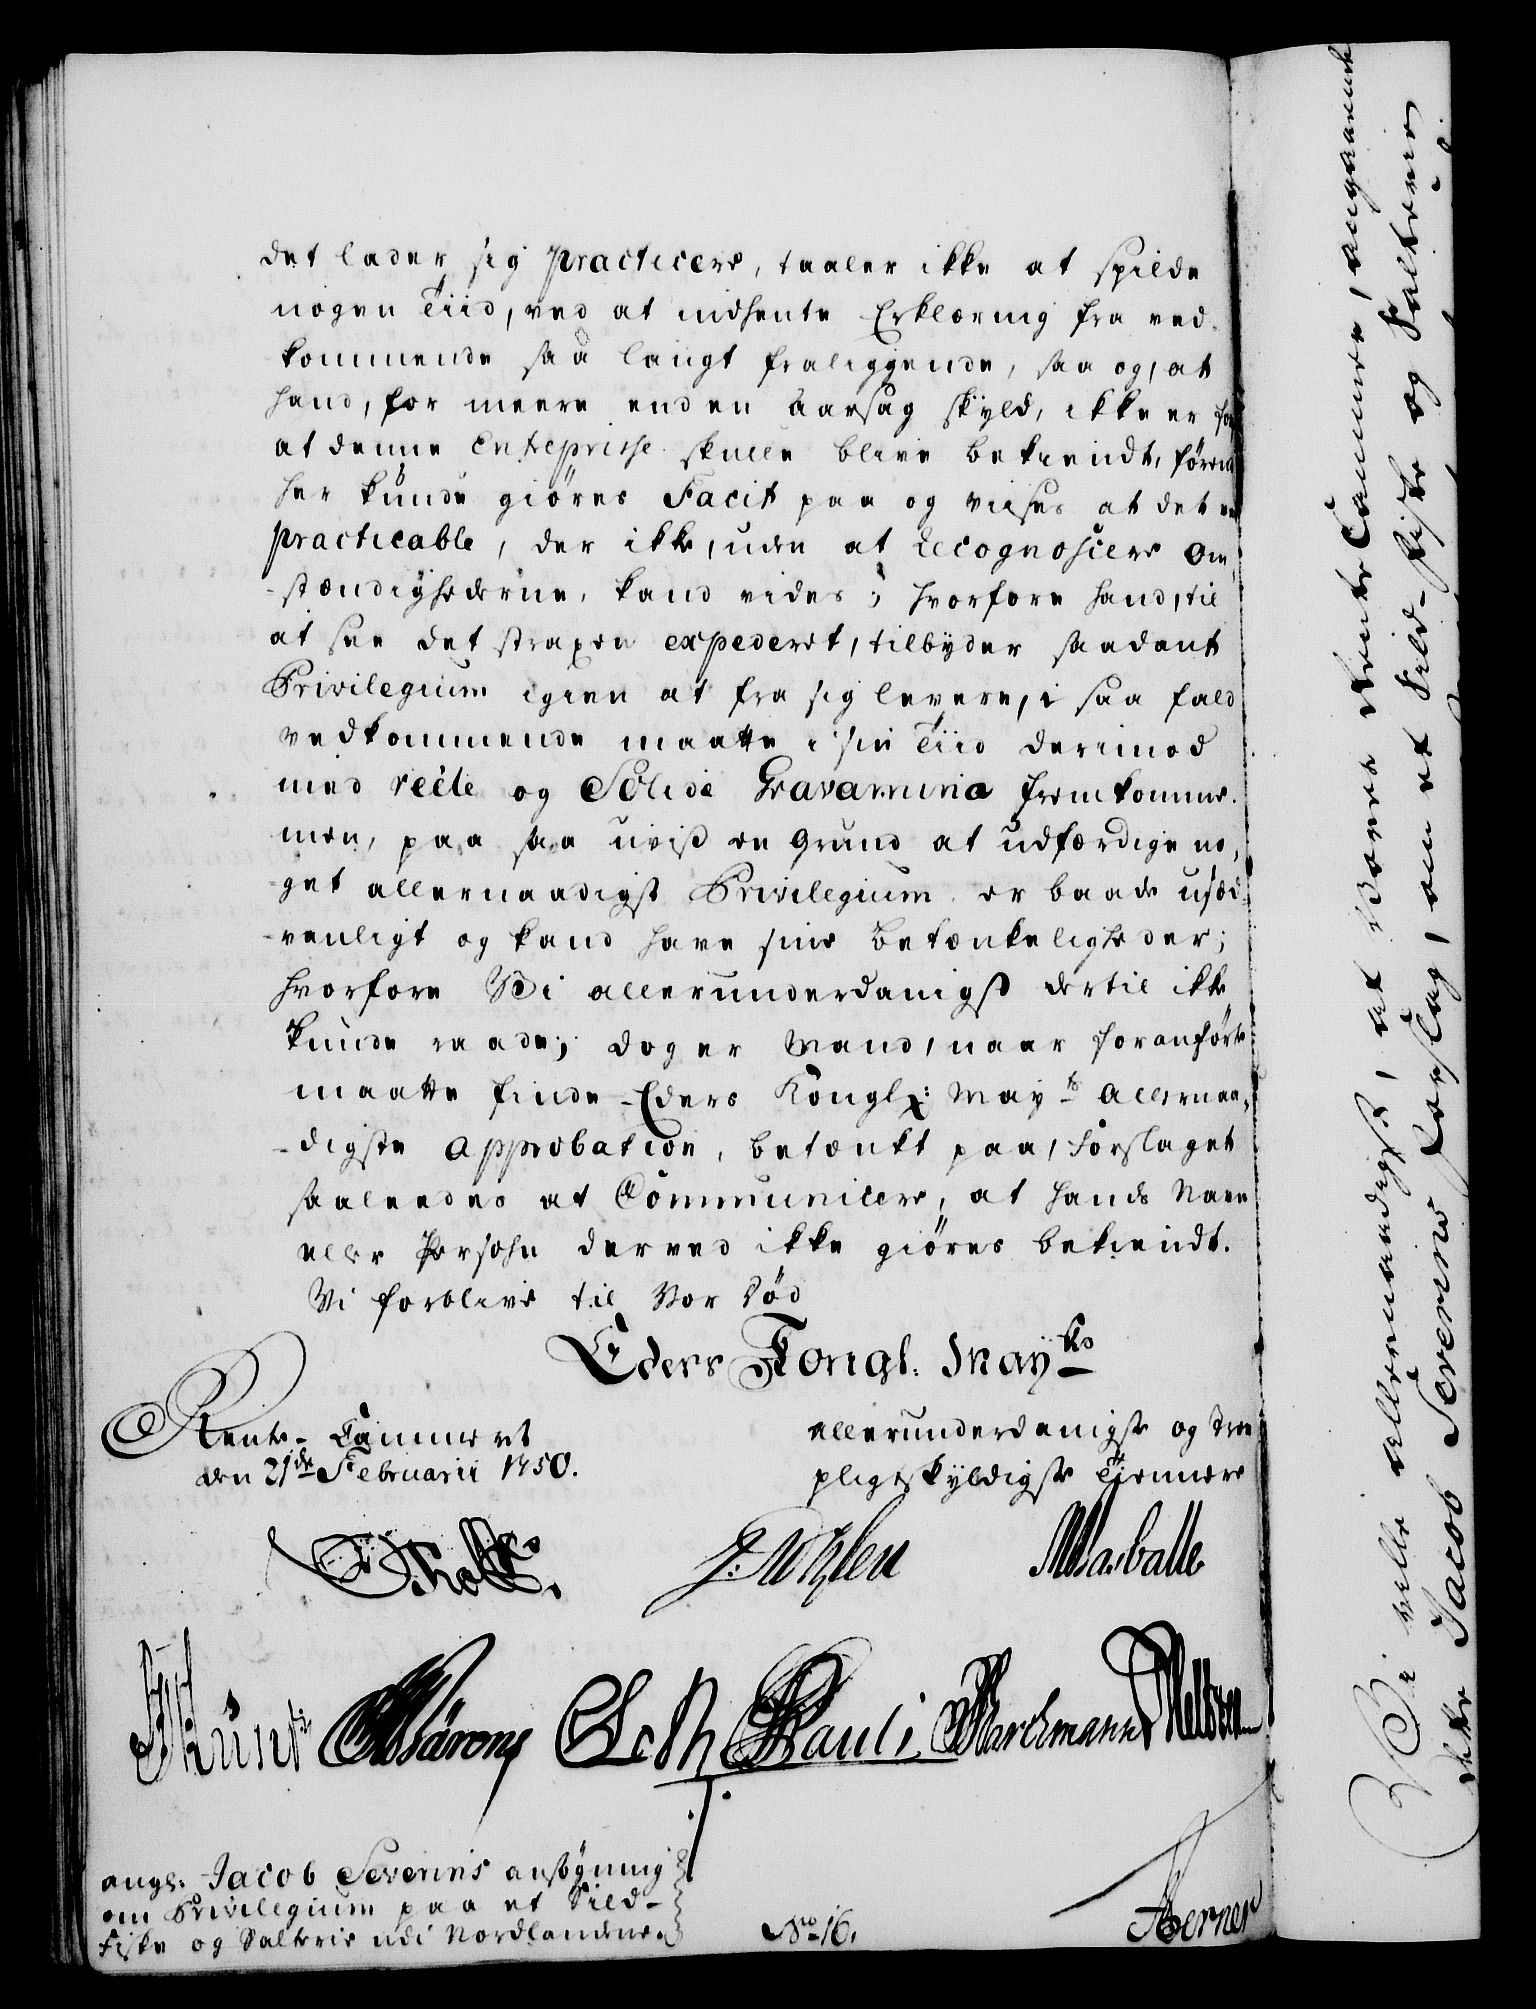 det lader sig practicere, taaler ikke at spilde
nogen Tiid, ved at indhente Erklæring fra ved-
kommende saa langt fraliggende, saa og, at
hand, for meere end en Aarsag skyld, ikke er for
at denne Enteprisse skulle blive bekiendt, førend
her kunde giøres Facit paa og viises at det er
practicable, der ikke, uden at recognoscere Om-
-stændighederne, kand vides; hvorfore hand, til
at see det straxen expederet, tilbyder saadant
Privilegium igien at fra sig levere, i saa fald
vedkommende maatte i sin Tiid derimod
med reele og Solide Gravamina fremkomme.
men, paa saa uviss en Grund at udfærdige no-
-get allernaadigst Privilegium er baade usæd-
-vanligt og kand have sine betænkeligheder;
hvorfore Vi allerunderdanigst dertil ikke
kunde raade; dog er Mand, naar foranførte
maatte finde Eders Kongl: Mayts Allernaa-
-digste Approbation, betænkt paa, Forslaget
saaleedes at Communicere, at hands Navn
eller Persohn derved ikke giøres bekiendt.
Vi forblive til Vor Død
Eders Kongl. Mayts
Rente-Cammeret
den 21de Februarii 1750.
allerunderdanigste og Troe
pligtskyldigste Tienere
angl. Jacob Severins ansøgning
om Privilegium paa et Sild-
Fiske og Salterie udi Nordlandene.
No 16.
Vi ville allernaadigst, at Vores Rente Cammer, angaaende
Jacob Severins Forslag, om et Sild-Fiske og Salterie